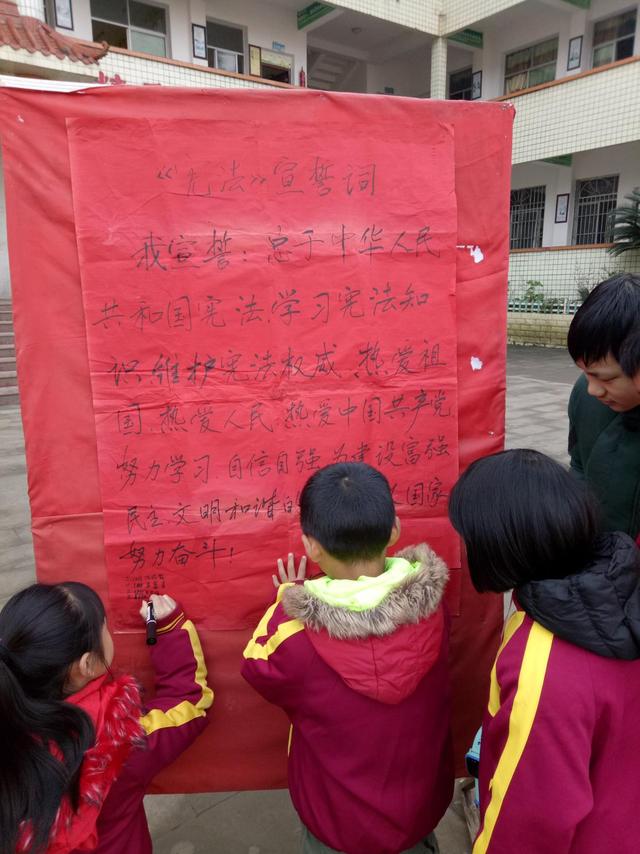 《宪法》宣誓词
我宣誓：忠于中华人民
共和国宪法、学习宪法知
识、维护宪法权威、热爱祖
国、热爱人民、热爱中国共产党
努力学习 自信自强 为建设富强
民主 文明和谐 国家
努力奋斗！